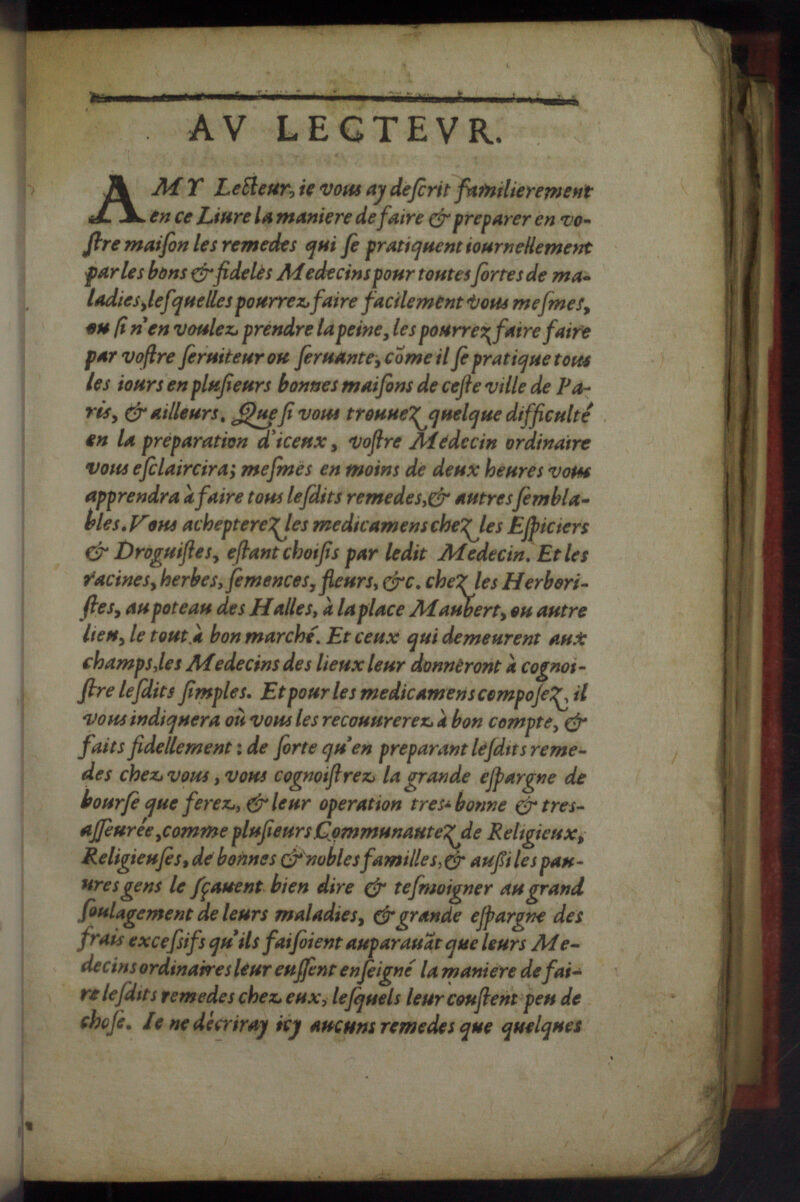 AV LECTEVR.
AMY Lecteur, ie vous ay descrit familierement
en ce Liure la maniere de faire & preparer en vo-
stre maison les remedes qui se pratiquent iournellement
par les bons & fideles Medecins pour toutes sortes de ma-
ladies, lesquelles pourrez faire facilement vous mesmes,
ou si n'en voulez prendre la peine, les pourrez faire faire
par vostre seruiteur ou seruante, cõme il se pratique tous
les iours en plusieurs bonnes maisons de ceste ville de Pa-
ris, & ailleurs. Que si vous trouuez quelque difficulté
en la préparation d'iceux, vostre Médecin ordinaire
vous esclaircira; mesmes en moins de deux heures vous
apprendra à faire tous lesdits remedes, & autres sembla-
bles. Vous achepterez les medicamens chez les Espiciers
& Droguistes, estant choisis par ledit Medecin. Et les
racines, herbes, semences, fleurs, &c. chez les Herbori-
stes, au poteau des Halles, à la place Maubert, ou autre
lieu, le tout à bon marché. Et ceux qui demeurent aux
champs, les Medecins des lieux leur donneront à cognoi-
stre lesdits simples. Et pour les medicamens composez, il
vous indiquera où vous les recouurerez à bon compte, &
faits fidellement : de sorte qu'en preparant lesdits reme-
des chez vous, vous cognoistrez la grande espargne de
bourse que ferez, & leur operation tres-bonne & tres-
asseurée, comme plusieurs Communautez de Religieux,
Religieuses, de bonnes & nobles familles, & aussi les pau-
ures gens le sçauent bien dire & tesmoigner au grand
soulagement de leurs maladies, & grande espargne des
frais excessifs qu'ils faisoient auparauãt que leurs Me-
decins ordinaires leur eussent enseigné la maniere de fai-
re lesdits remedes chez eux, lesquels leur coustent peu de
chose. Ie ne décriray icy aucuns remedes que quelques